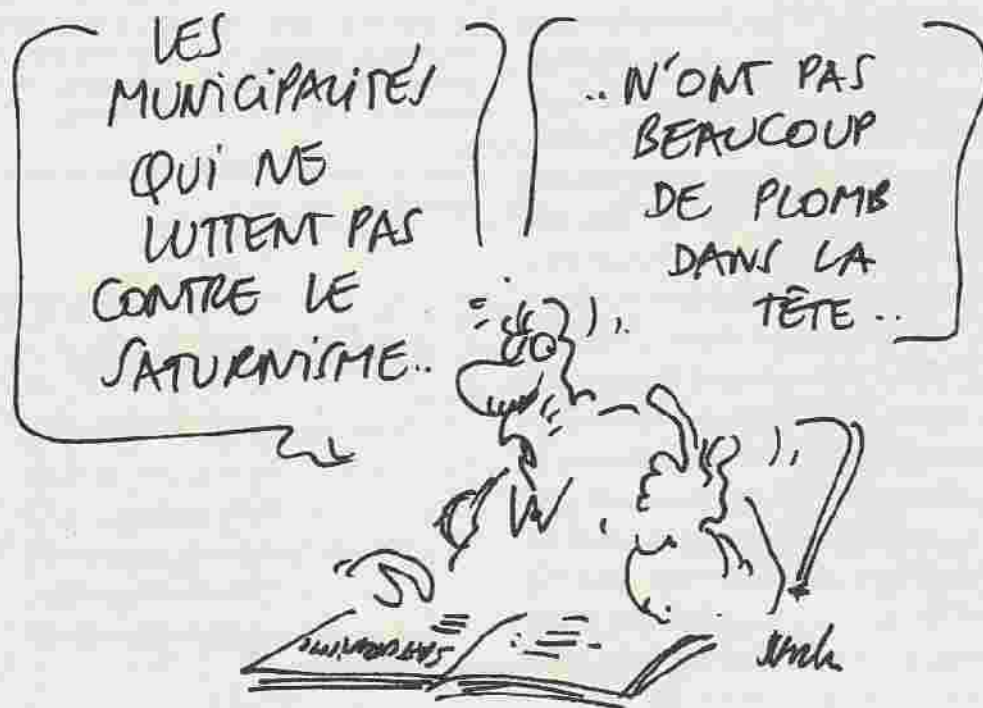 LES
MUNICIPALITÉS
QUI NE
LUTTENT PAS
CONTRE LE
SATURNISME..
..N'ONT PAS
BEAUCOUP
DE PLOMB
DANS LA
TÊTE..
SATURNISME